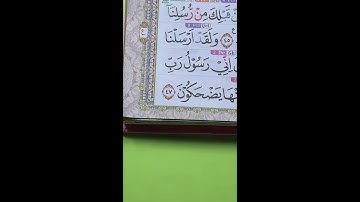 قَبْلِكَ مِنْ رُّسُلِنَا
٤٥ وَلَقَدْ اَرْسَلْنَا
اِنِّيْ رَسُوْلُ رَبِّ
يَضْحَكُوْنَ ٤٧